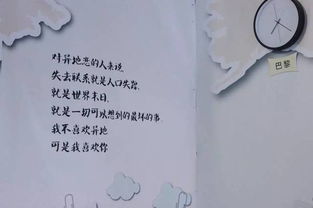 对异地恋的人来说
失去联系就是人口失踪
就是世界末日
就是一切可以想到的最坏的事
我不喜欢异地
可是我喜欢你
巴黎